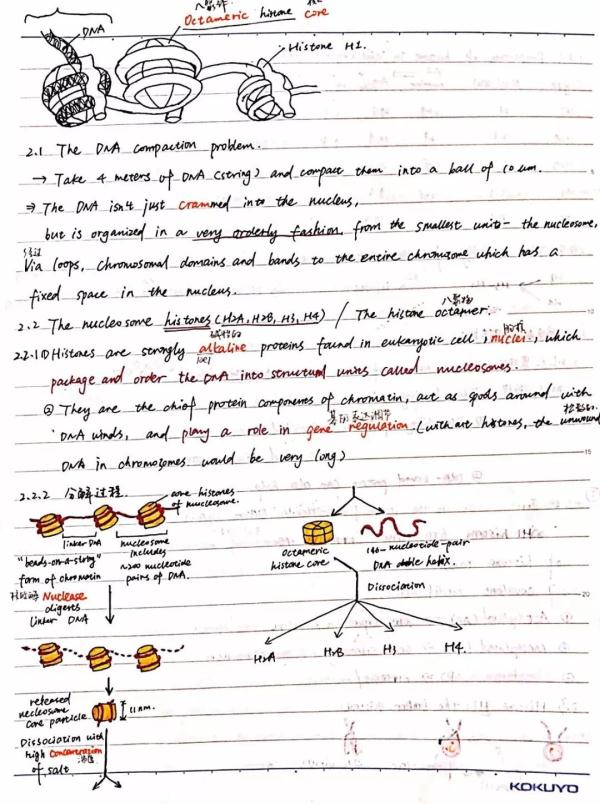 八聚体
Octameric histone core
DNA
Histone H1.
2.1 The DNA compaction problem.
→ Take 4 meters of DNA (string) and compact them into a ball of 10 um.
⇒ The DNA isn't just crammed into the nucleus,
but is organized in a very orderly fashion, from the smallest unit - the nucleosome,
经过
Via loops, chromosomal domains and bands to the entire chromosome which has a
fixed space in the nucleus.
八聚物
2.2 The nucleosome histones (H2A, H2B, H3, H4) / The histone octamer.
碱性的
2.2.1 ① Histones are strongly alkaline proteins found in eukaryotic cell nuclei, which
package and order the DNA into structural units called nucleosomes.
② They are the chief protein components of chromatin, act as spools around with
基因表达调节
DNA winds, and play a role in gene regulation. (without histones, the unwound
DNA in chromosomes would be very long)
2.2.2 分解过程.
core histones
of nucleosome.
linker DNA
nucleosome
includes
~200 nucleotide
pairs of DNA.
"beads-on-a-string"
form of chromatin
Nuclease
digests
linker DNA
released
necleosome
core particle
11 nm.
Dissociation with
high concentration
浓度
of salt
octameric
histone core
146-nucleotide-pair
DNA double helix.
Dissociation
H2A
H2B
H3
H4.
15
20
KOKUYO